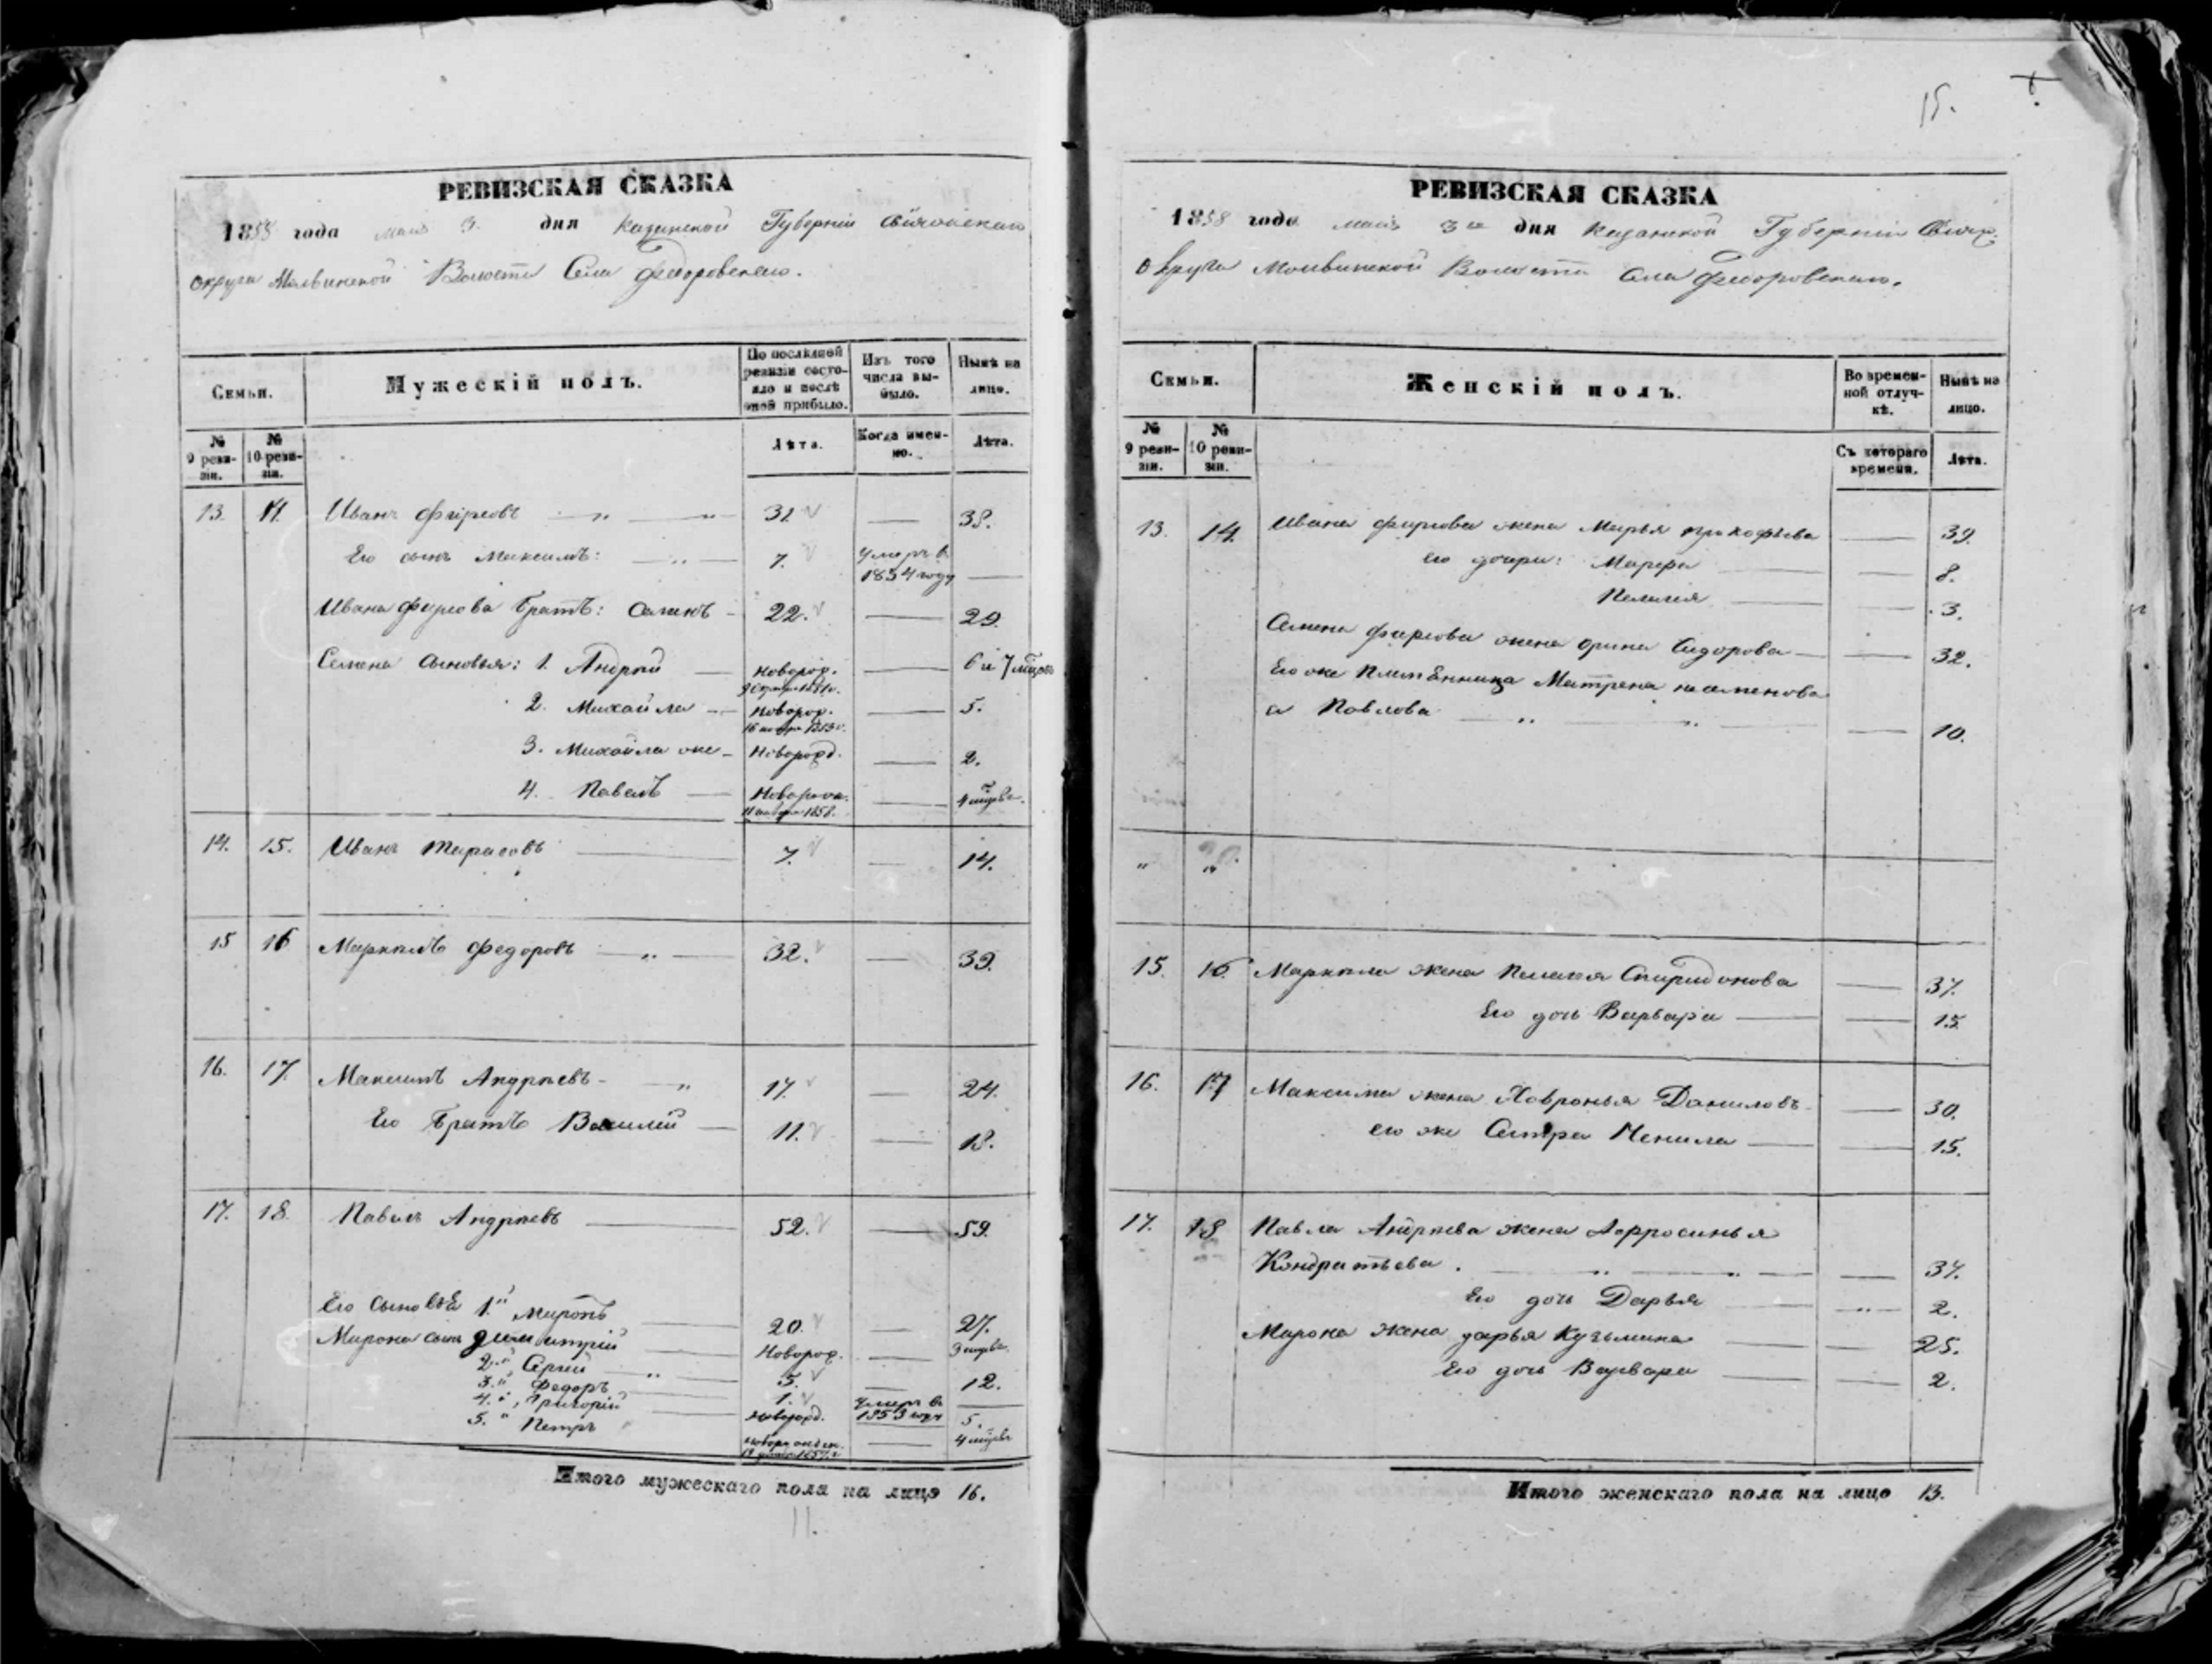 15.
РЕВИЗСКАЯ СКАЗКА
1858 года мая 3. дня Казанской Губерніи Свіяжскаго
округа Молвинской Волости Села Федоровскаго.
Семьи.
Мужескій полъ.
По послѣдней ревизіи состояло и послѣ оной прибыло.
Изъ того числа выбыло.
Нынѣ на лицо.
№ 9 ревизіи.
№ 10 ревизіи.
Лѣта.
Когда именно.
Лѣта.
13. 14 Иванъ Фирсовъ — " — " 31 — 38.
Его сынъ Максимъ: — " — 7. умеръ въ 1854 году —
Ивана Фирсова братъ: Семенъ — 22. — 29.
Семена сыновья: 1. Андрей — новорож. — 6 и 7 мѣсяц.
2. Михайла — новорож. — 5.
3. Михайла же — Новорожд. — 2.
4. Павелъ — Новорож. — 4 мѣсяц.
14. 15. Иванъ Тарасовъ — 7. — 14.
15 16 Маркелъ Федоровъ — " — 32. — 39.
16. 17. Максимъ Андреевъ — " 17. — 24.
Его братъ Василий — 11. — 18.
17. 18. Павелъ Андреевъ — 52. — 59.
Его сыновья 1.й Миронъ — 20. — 27.
Мирона сынъ Димитрій — Новорож. — 9 мѣсяц.
2." Сергій — " — 5. — 12.
3." Федоръ — 1. умеръ въ 1853 году —
4." Григорій — новорожд. 5.
5. " Петръ — 4 мѣсяц.
Итого мужескаго пола на лицо 16.
11.
РЕВИЗСКАЯ СКАЗКА
1858 года мая 3го дня Казанской Губерніи Свіяж.
округа Молвинской Волости Села Федоровскаго.
Семьи.
Женскій полъ.
Во временной отлучкѣ.
Нынѣ на лицо.
№ 9 ревизіи.
№ 10 ревизіи.
Съ котораго времени.
Лѣта.
13. 14. Ивана Фирсова жена Марья Прокофьева — 39.
его дочери: Марфа — 8.
Пелагея — 3.
Семена Фирсова жена Орина Сидорова — 32.
Его же племѣнница Матрена
а Павлова — " — " — 10.
" "
15. 16. Маркела жена Пелагея Спиридонова — 37.
Его дочь Варвара — 15.
16. 17 Максима жена Ховронья Данилова — 30.
его же Сестра Ненила — 15.
17. 18 Павла Андреева жена Афросинья
Кондратьева. — " — " — 37.
Его дочь Дарья — " — 2.
Мирона жена Дарья Кузьмина — 25.
Его дочь Варвара — 2.
Итого женскаго пола на лицо 13.